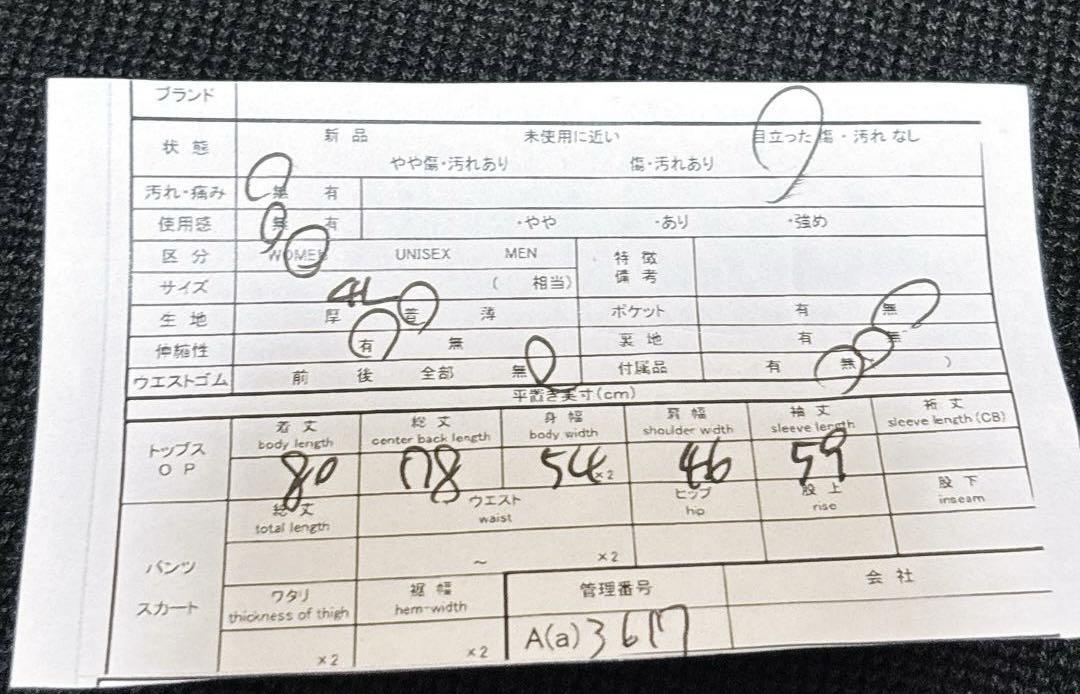 ブランド
状態 新品 未使用に近い 目立った傷・汚れなし
やや傷・汚れあり 傷・汚れあり
汚れ・痛み 無 有
使用感 無 有 ・やや ・あり ・強め
区分 WOMEN UNISEX MEN 特徴備考
サイズ 4L ( 相当)
生地 厚 普 薄 ポケット 有 無
伸縮性 有 無 裏地 有 無
ウエストゴム 前 後 全部 無 付属品 有 無 ( )
平置き実寸(cm)
トップス OP 着丈 総丈 身幅 肩幅 袖丈 裄丈
body length center back length body width shoulder wdth sleeve length sleeve length (CB)
80 78 54 ×2 46 59
パンツ スカート 総丈 ウエスト ヒップ 股上 股下
total length waist hip rise inseam
~ ×2
ワタリ 裾幅 管理番号 会社
thickness of thigh hem-width
×2 ×2 A(a) 3617